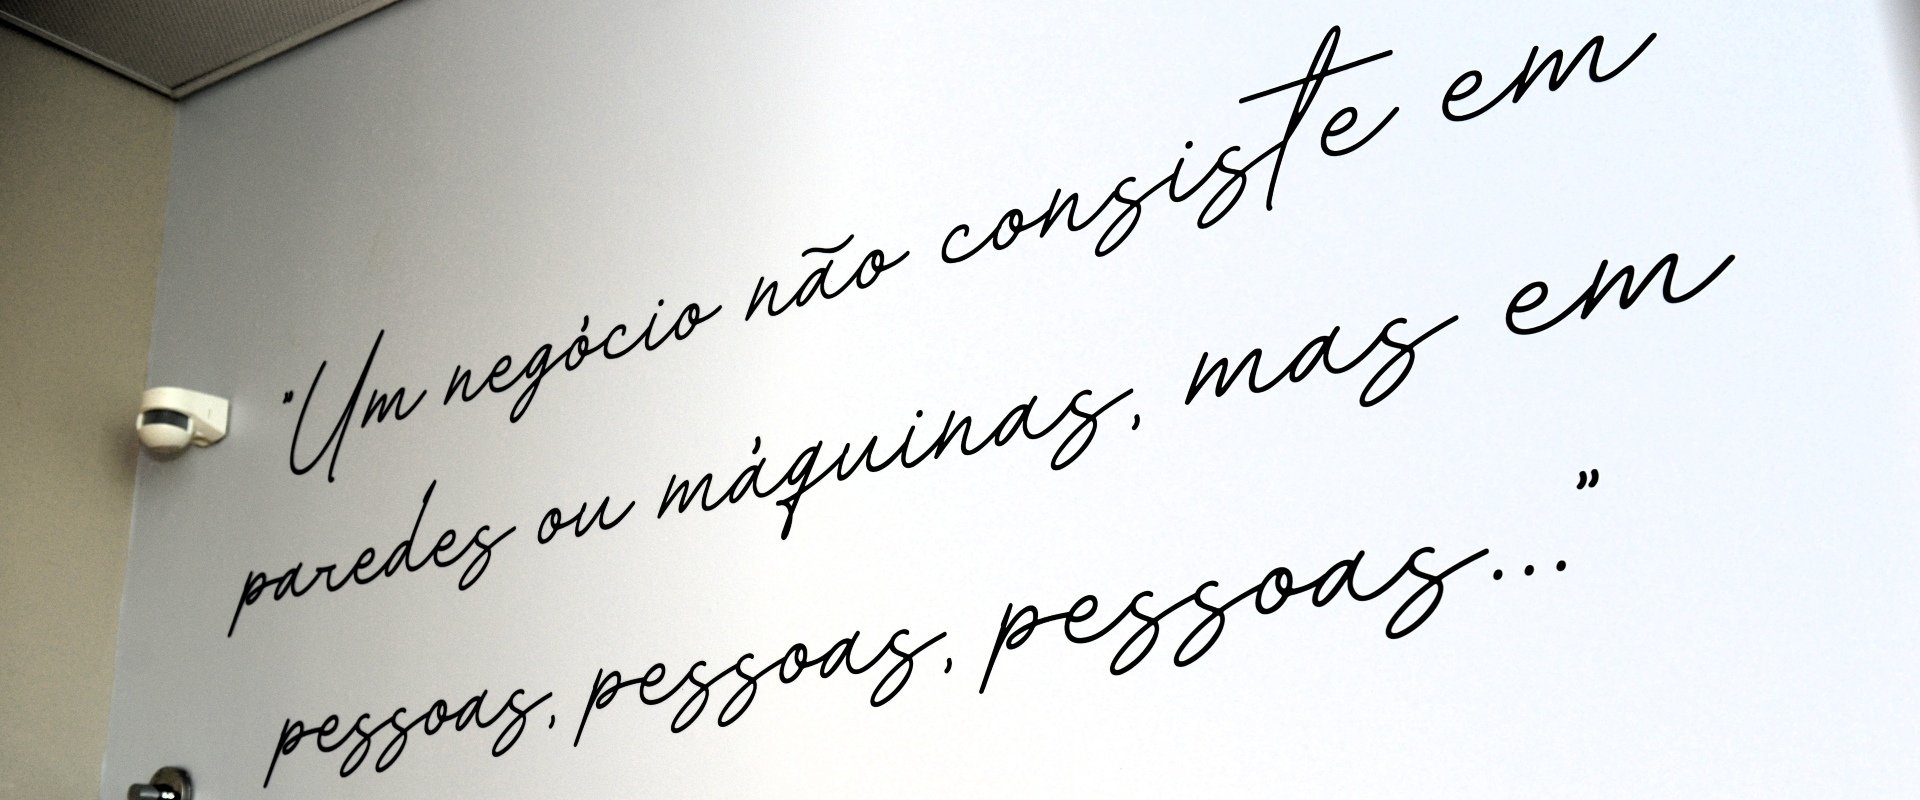 "Um negócio não consiste em
paredes ou máquinas, mas em
pessoas, pessoas, pessoas..."